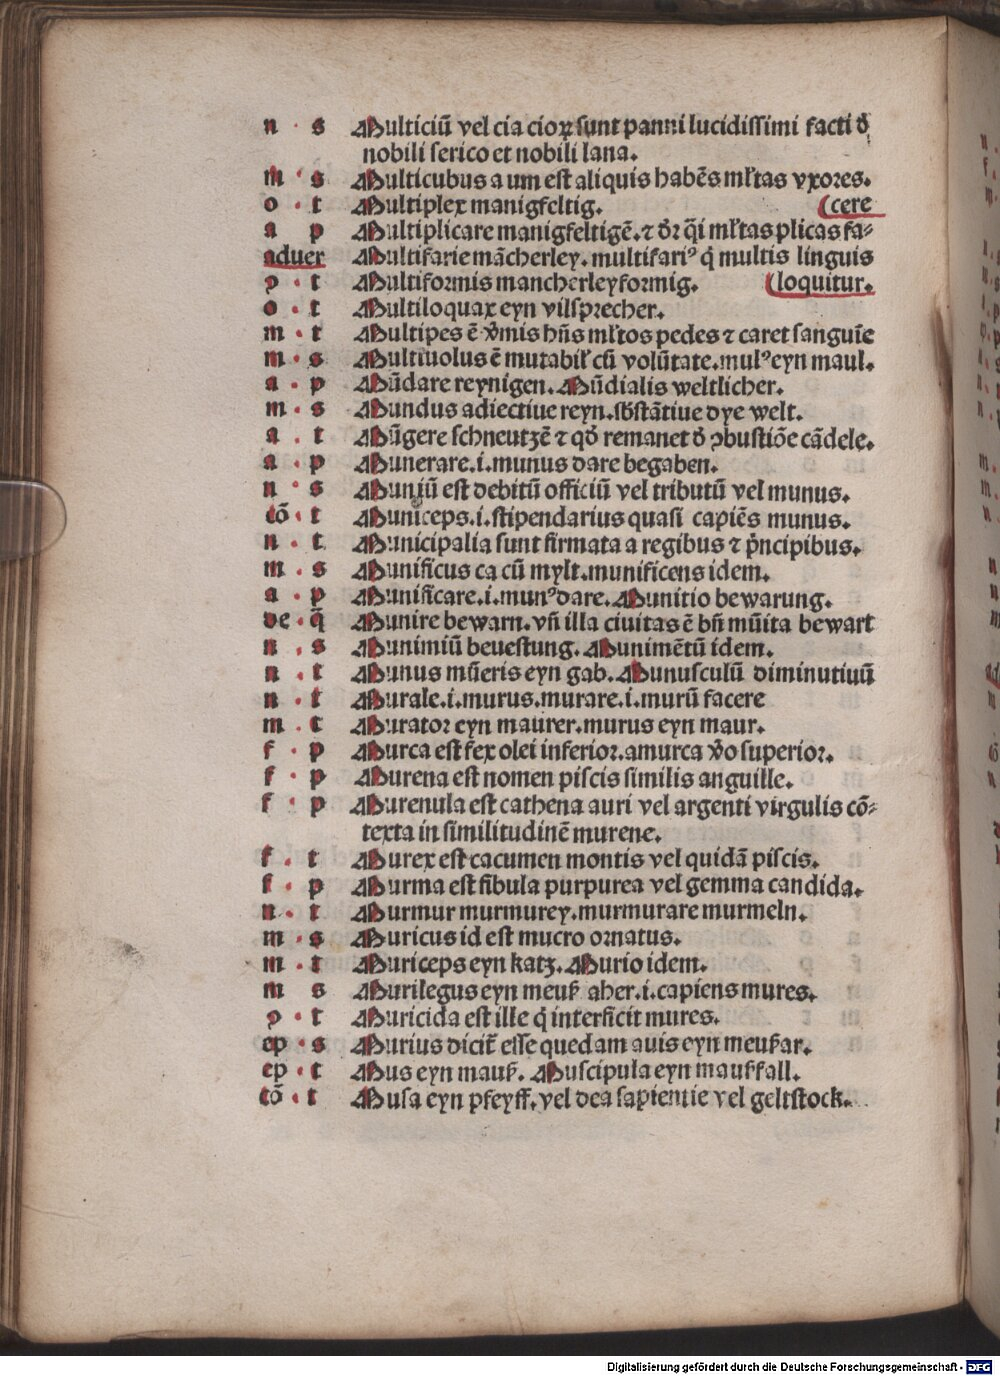 n · s Multiciū vel cia cioꝝ sunt panni lucidissimi facti ð
nobili serico et nobili lana.
m · s Multicubus a um est aliquis habēs ml̃tas vxores.
o · t Multiplex manigfeltig. (cere
a p Multiplicare manigfeltigē. ⁊ ðr q̃i ml̃tas plicas fa⸗
aduer Multifarie mācherley. multifariꝰ q̇ multis linguis
ꝯ · t Multiformis mancherleyformig. (loquitur.
o · t Multiloquax eyn vilsprecher.
m · t Multipes ē v̾mis hñs ml̃tos pedes ⁊ caret sanguīe
m · s Multiuolus ē mutabil̛ cū volūtate. mulꝰ eyn maul.
a · p Mūdare reynigen. Mūdialis weltlicher.
m · s Mundus adiectiue reyn. sb̄stātiue dye welt.
a · t Mūgere schneutzē ⁊ qð remanet ð ꝯbustiōe cādele.
a · p Munerare. i. munus dare begaben.
n · s Muniū est debitū officiū vel tributū vel munus.
cō · t Municeps. i. stipendarius quasi capiēs munus.
n · t Municipalia sunt firmata a regibus ⁊ p̃ncipibus.
m · s Munificus ca cū mylt. munificens idem.
a · p Munificare. i. munꝰ dare. Munitio bewarung.
ve · q̄ Munire bewarn. vñ illa ciuitas ē bñ mūita bewart
n · s Munimiū beuestung. Munimētū idem.
n · t Munus mūeris eyn gab. Munusculū diminutiuū
n · t Murale. i. murus. murare. i. murū facere
m · t Murator eyn maurer. murus eyn maur.
f · p Murca est fex olei inferior. amurca v̾o superior.
f · p Murena est nomen piscis similis anguille.
f · p Murenula est cathena auri vel argenti virgulis cō⸗
texta in similitudinē murene.
f · t Murex est cacumen montis vel quidā piscis.
f · p Murma est fibula purpurea vel gemma candida.
n · t Murmur murmurey. murmurare murmeln.
m · s Muricus id est mucro ornatus.
m · t Muriceps eyn katz. Murio idem.
m s Murilegus eyn meuß aher. i. capiens mures.
ꝯ · t Muricida est ille q̇ interficit mures.
ep · s Murius dicit̃ esse quedam auis eyn meußar.
ep · t Mus eyn mauß. Muscipula eyn maußfall.
cō · t Musa eyn pfeyff. vel dea sapientie vel geltstock.
Digitalisierung gefördert durch die Deutsche Forschungsgemeinschaft - DFG